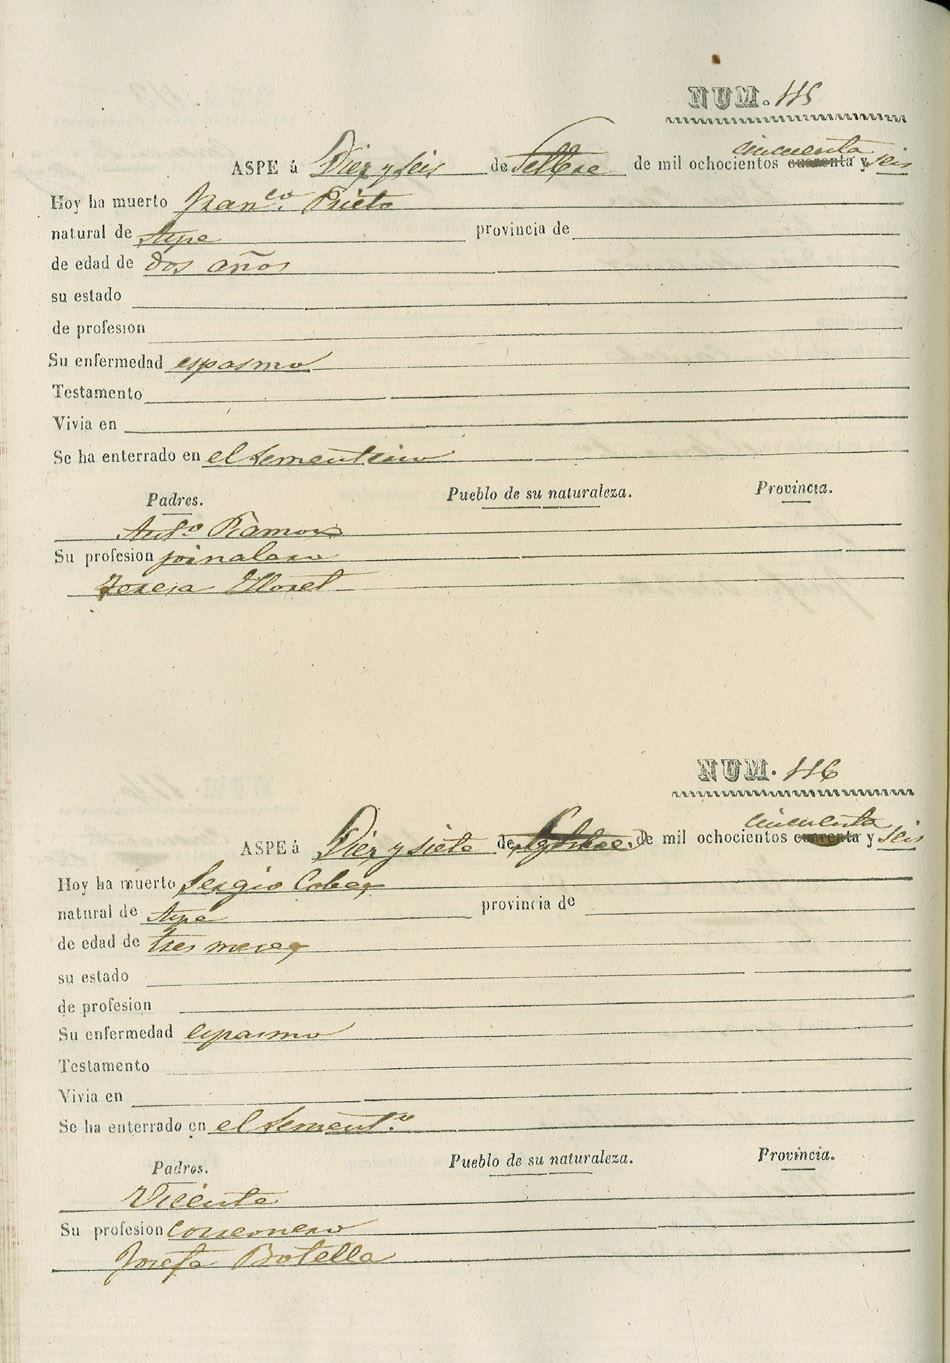 NUM. 115
cincuenta
ASPE á Diez y seis de Setbre de mil ochocientos cuarenta y seis
Hoy ha muerto Franco. Prieto
natural de Aspe provincia de
de edad de dos años
su estado
de profesion
Su enfermedad espasmo
Testamento
Vivia en
Se ha enterrado en el sementerio
Padres. Pueblo de su naturaleza. Provincia.
Anto. Ramon
Su profesion jornalero
Teresa Lloret
NUM. 116
cincuenta
ASPE á Diez y siete de de mil ochocientos cuarenta y seis
Hoy ha muerto Sergio
natural de Aspe provincia de
de edad de tres meses
su estado
de profesion
Su enfermedad espasmo
Testamento
Vivia en
Se ha enterrado en el sement.o
Padres. Pueblo de su naturaleza. Provincia.
Vicente
Su profesion
Josefa Botella